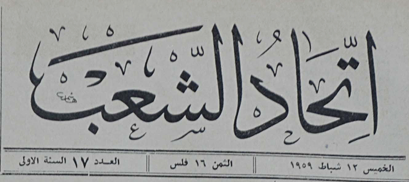 اتحاد الشعب
الخميس ١٢ شباط ١٩٥٩ الثمن ١٦ فلس العدد ١٧ السنة الاولى